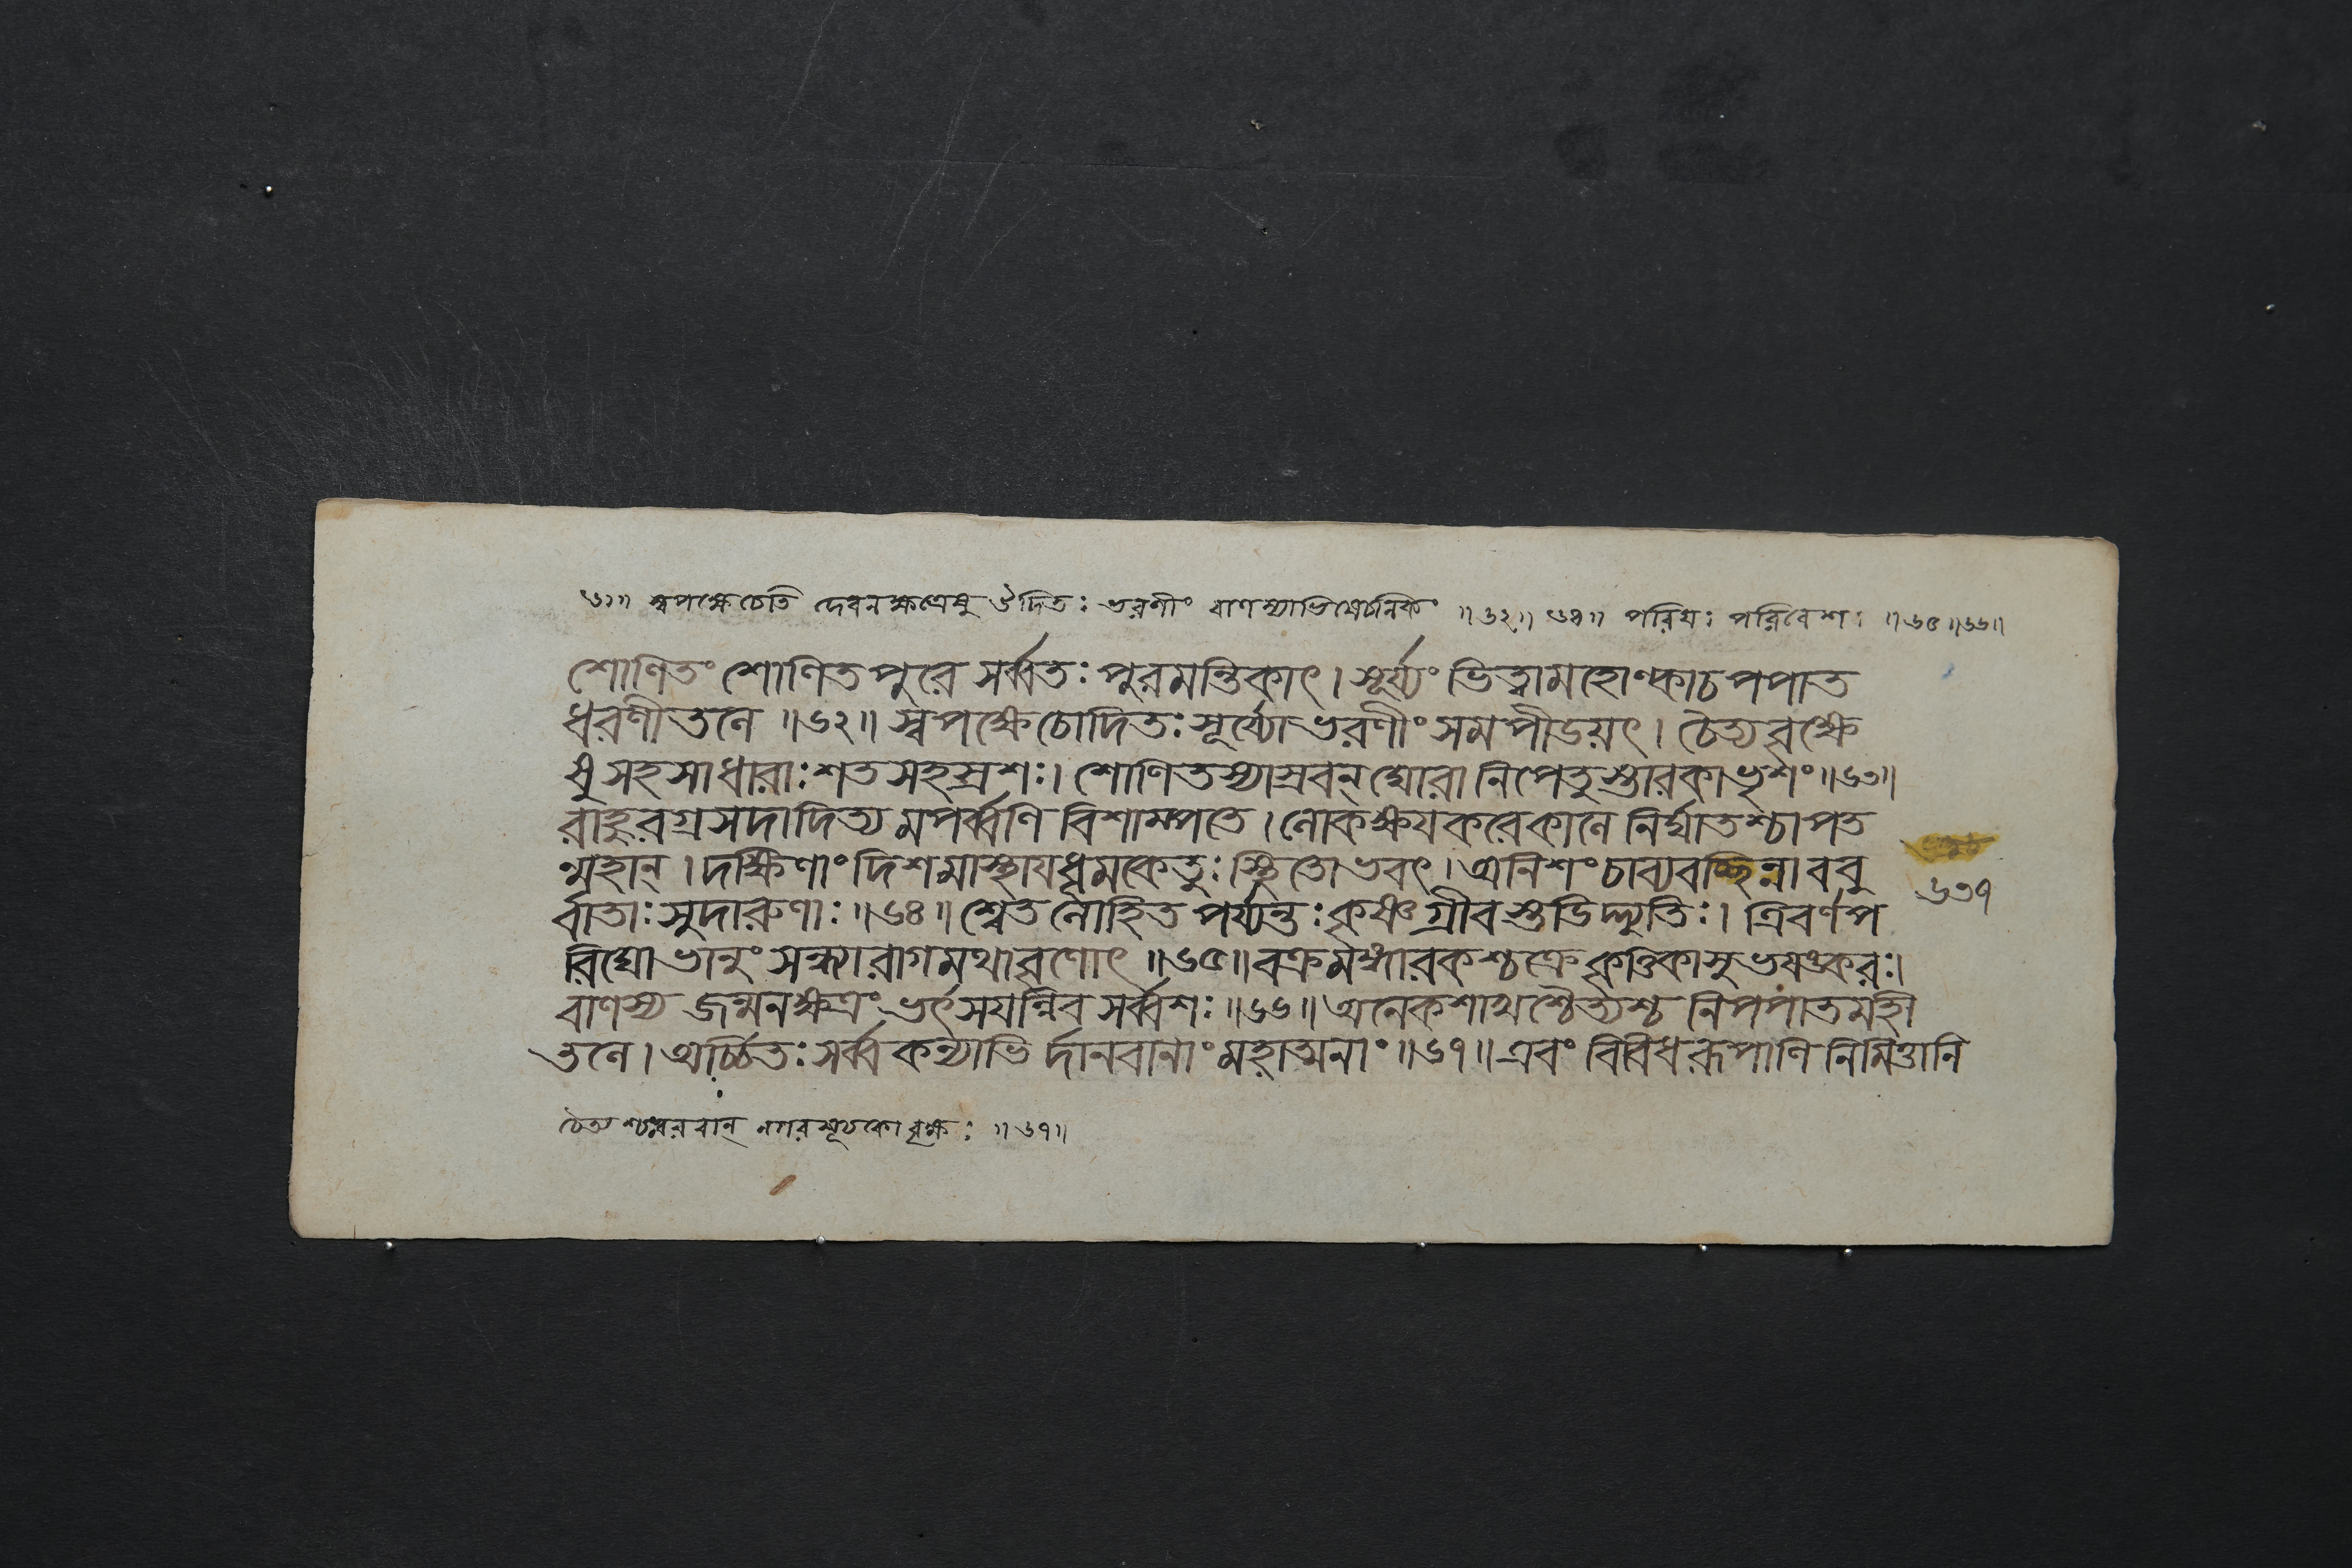 ৬১॥ স্বপক্ষেচেতি দেবনক্ষত্রেষু ঔদিত: ভরণীং বাণস্যাভিষেচনিকিং ॥৬২॥ ৬৪॥ পরিঘ: পরিবেশ: ॥৬৫॥৬৬॥
শোণিতং শোণিতপুরে সর্ব্বত: পুরমন্তিকাৎ। সূর্য্যং ভিত্বামহোল্কাচপপাত
ধরণীতলে ॥৬২॥ স্বপক্ষেচোদিত: সূর্য্যোভরণীং সমপীডয়ৎ। চৈত্যবৃক্ষে
ষু সহসাধারা: শতসহস্রশ:। শোণিতস্যাস্রবন্ ঘোরা নিপেতুস্তারকাভৃশং ॥৬৩॥
রাহুরগ্রসদাদিত্যমপর্ব্বণি বিশাম্পতে। লোকক্ষযকরেকালে নির্ঘাতশ্চাপত
ন্মহান্। দক্ষিণাং দিশমাস্থাযধূমকেতু: স্থিতোভবৎ। অনিশং চাব্যবচ্ছিন্নাববু
র্বাতা: সুদারুণা: ॥৬৪॥ শ্বেতলোহিত পর্য্যন্ত: কৃষ্ণগ্রীবস্তডিদ্দ্যুতি:। ত্রিবর্ণপ
রিঘোভানুং সন্ধ্যারাগমথাবৃণোৎ ॥৬৫॥ বক্রমঙ্গারকশ্চক্রে কৃত্তিকাসুভযঙ্কর:।
বাণস্য জন্মনক্ষত্রং ভর্ৎসযন্নিব সর্ব্বশ: ॥৬৬॥ অনেকশাখশ্চৈত্যশ্চ নিপপাতমহী
তলে। অর্চ্চিত: সর্ব্বকন্যাভি র্দানবানাং মহাত্মনাং ॥৬৭॥ এবং বিবিধরূপাণি নিমিত্তানি
৬৩৭
চৈত্য নগরসূচকোবৃক্ষ: ॥৬৭॥